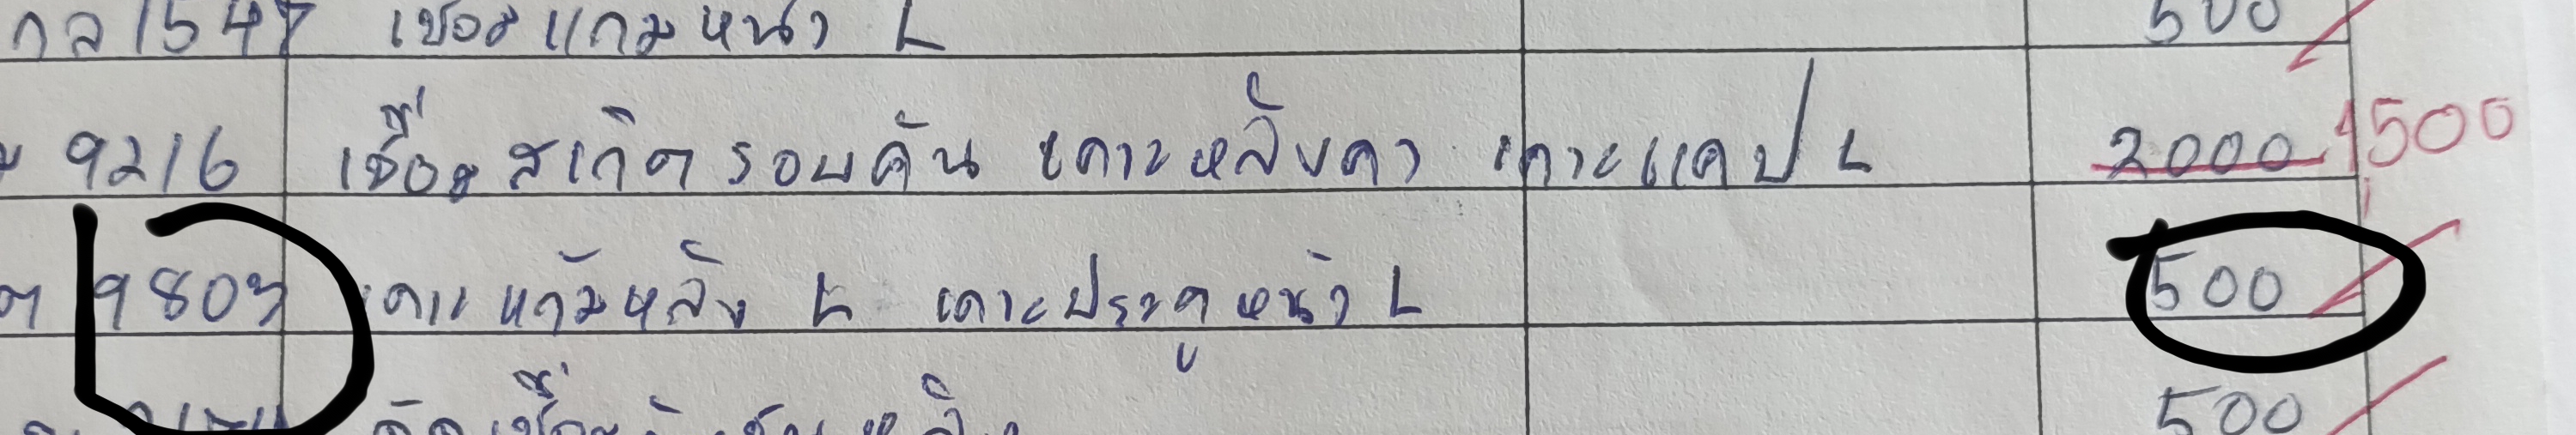 กล 1547 เชื่อมแก้มหน้า L 500
9216 เชื่อมสเกิตรอบคัน เคาะหลังคา เคาะแคป L 2000 1500
ต 9803 เคาะแก้มหลัง L เคาะประตูหน้า L 500
500